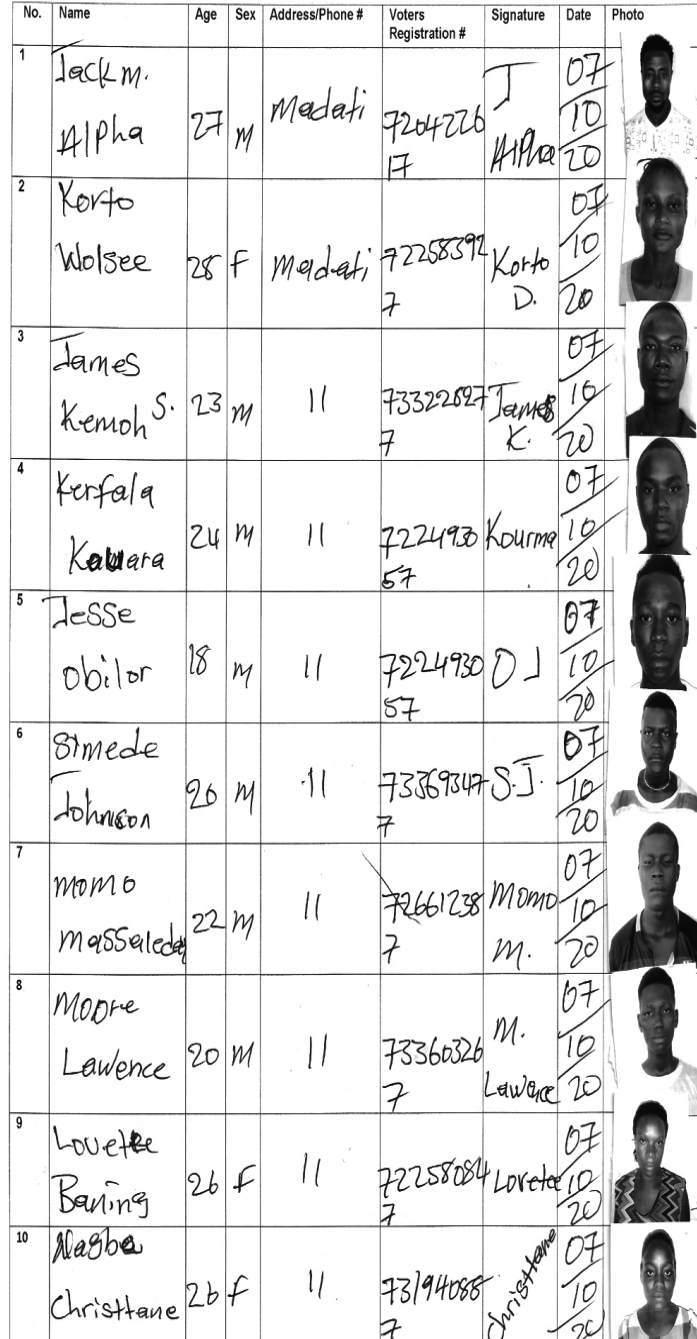 No. Name Age Sex Address/Phone # Voters Registration # Signature Date Photo
1 Jack M. Alpha 27 M Madati 720422617 J Alpha 07/10/20
2 Korto Wolsee 28 F Madati 722583927 Korto D. 07/10/20
3 James Kemoh S. 23 M 11 733228277 James K. 07/10/20
4 Kerfala 24 M 11 722493057 Kourma 07/10/20
5 Jesse Obilor 18 M 11 722493057 O J 07/10/20
6 Johnson 20 M 11 733693477 S.J. 07/10/20
7 Momo 22 M 11 726612387 Momo M. 07/10/20
8 Moore Lawence 20 M 11 733603267 M. 07/10/20
9 Baning 26 F 11 722580847 07/10/20
10 Christtane 26 F 11 731940887 Christtane 07/10/20